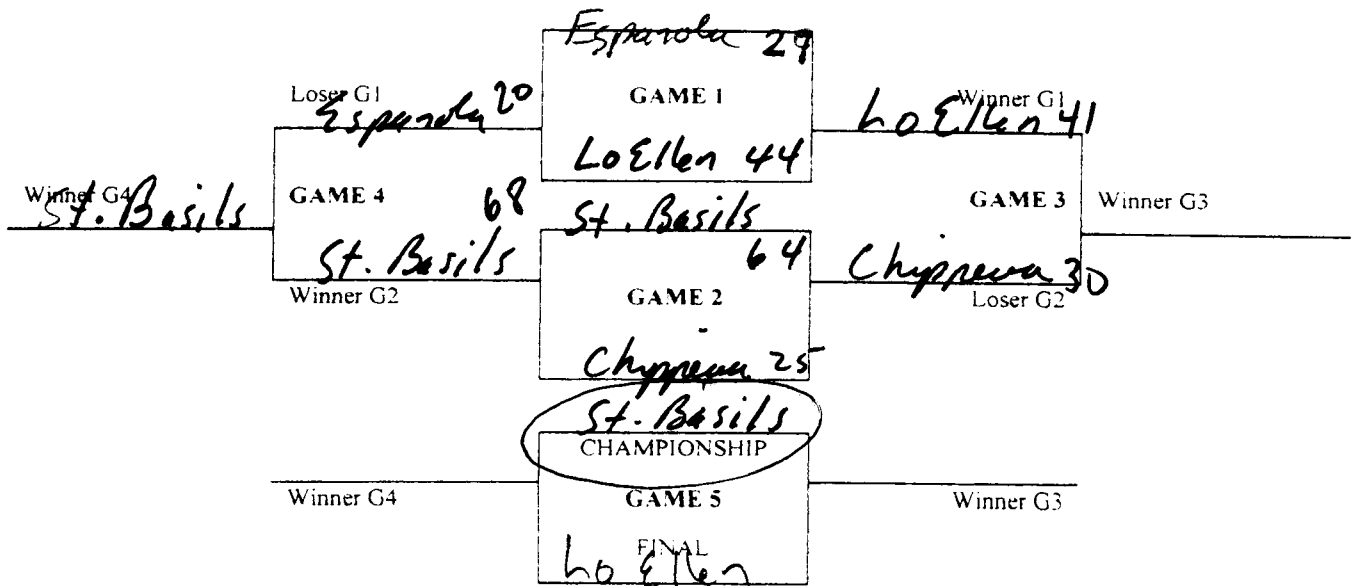 Espanola 29
Loser G1
Espanola 20
GAME 1
Winner G1
LoEllen 41
LoEllen 44
Winner G4
St. Basils
GAME 4
68
St. Basils
GAME 3
Winner G3
St. Basils
64
Chippewa 30
Winner G2
GAME 2
Loser G2
Chippewa 25
St. Basils
CHAMPIONSHIP
Winner G4
GAME 5
Winner G3
FINAL
Lo Ellen